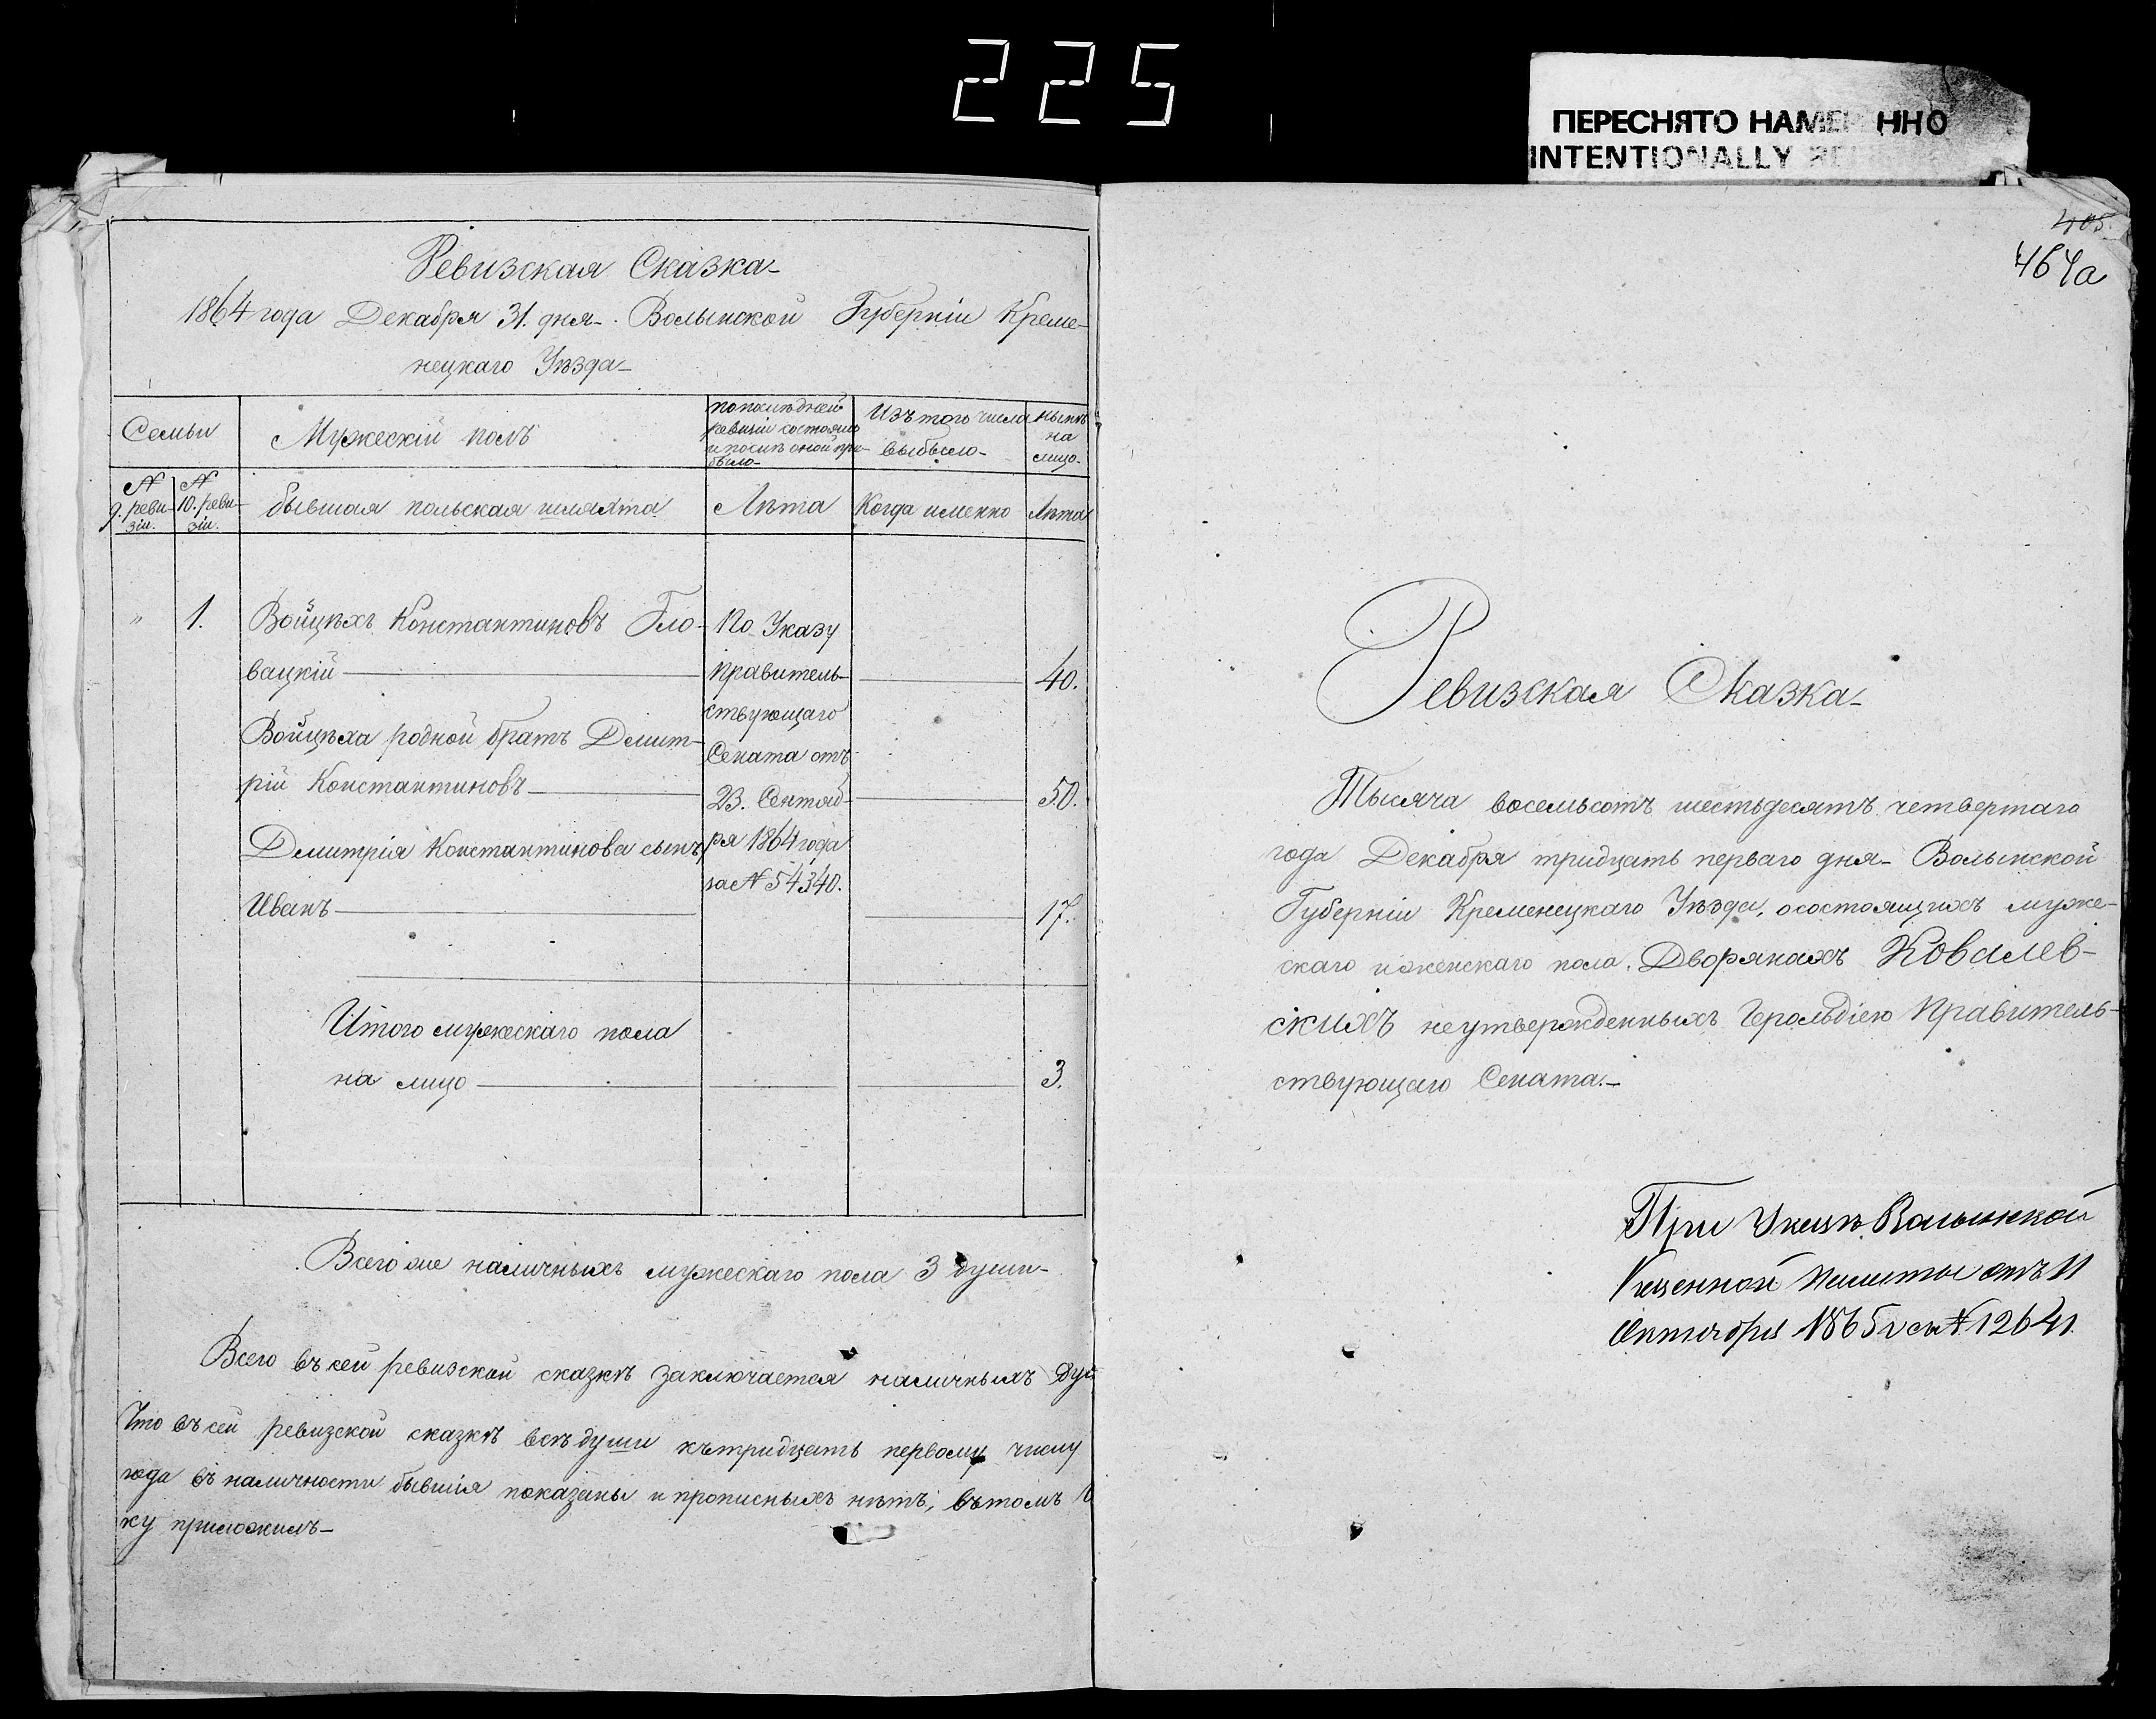 225
ПЕРЕСНЯТО НАМЕРЕННО
INTENTIONALLY
Ревизская Сказка
1864 года Декабря 31. дня. Волынской Губерніи Креме-
нецкаго Уѣзда
Семьи
Мужескій полъ
По послѣдней
ревизіи состояло
и послѣ оной при-
было
Изъ того числа
выбыло
Нынѣ
на
лицо
№
9. реви-
зіи.
№
10. реви-
зіи.
бывшая польская шляхта
Лѣта
Когда именно
Лѣта
"
1.
Войцѣхъ Константиновъ Гло-
вацкій
40.
Войцѣха родной братъ Дмит-
рій Константиновъ
50.
Дмитрія Константинова сынъ
Иванъ
17.
По Указу
Правитель-
ствующаго
Сената отъ
23. Сентяб-
ря 1864 года
за № 54340.
Итого мужескаго пола
на лицо
3.
Всего же наличныхъ мужескаго пола 3 души
Всего въ сей ревизской сказкѣ заключается наличныхъ Ду
Что въ сей ревизской сказкѣ всѣ души къ тридцать первому числу
года въ наличности бывшія показаны и прописныхъ нѣтъ, въ томъ
ку приложилъ
405.
464а
Ревизская Сказка
Тысяча восемьсотъ шестьдесятъ четвертаго
года Декабря тридцать перваго дня Волынской
Губерніи Кременецкаго Уѣзда, о состоящихъ муже-
скаго и женскаго пола, Дворянахъ Ковалев-
скихъ неутвержденныхъ Герольдіею Правитель-
ствующаго Сената.
При Указѣ Волынской
Казенной Палаты отъ 11
Октября 1865 г за № 12641.